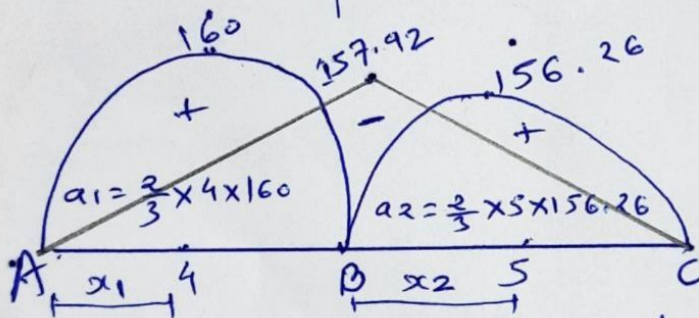 160
157.92
156.26
+
-
+
a1 = 2/3 × 4 × 160
a2 = 2/3 × 5 × 156.26
A 4 B 5 C
x1 x2